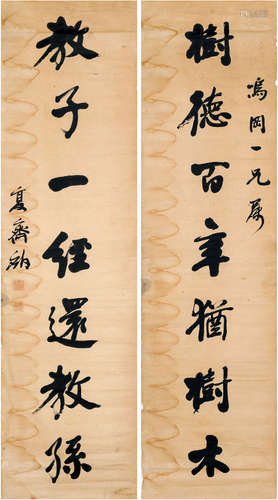 樹德百年猶樹木
馮岡一兄屬
教子一經還教孫
夏齊